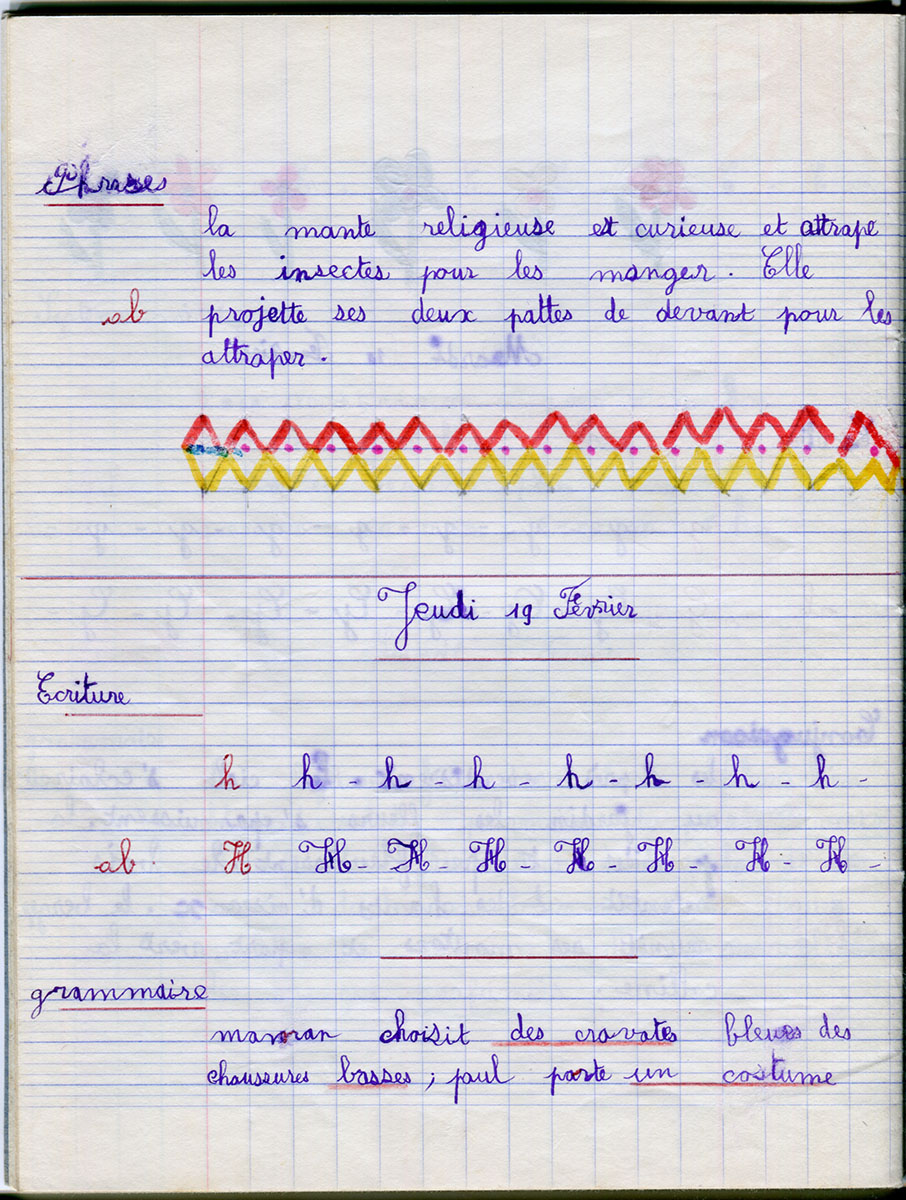 Phrases
la mante religieuse est curieuse et attrape
les insectes pour les manger. Elle
ab projette ses deux pattes de devant pour les
attraper.
Jeudi 19 Février
Ecriture
h h - h - h - h - h - h - h -
ab. H H - H - H - H - H - H - H -
grammaire
maman choisit des cravates bleues des
chaussures basses ; paul porte un costume